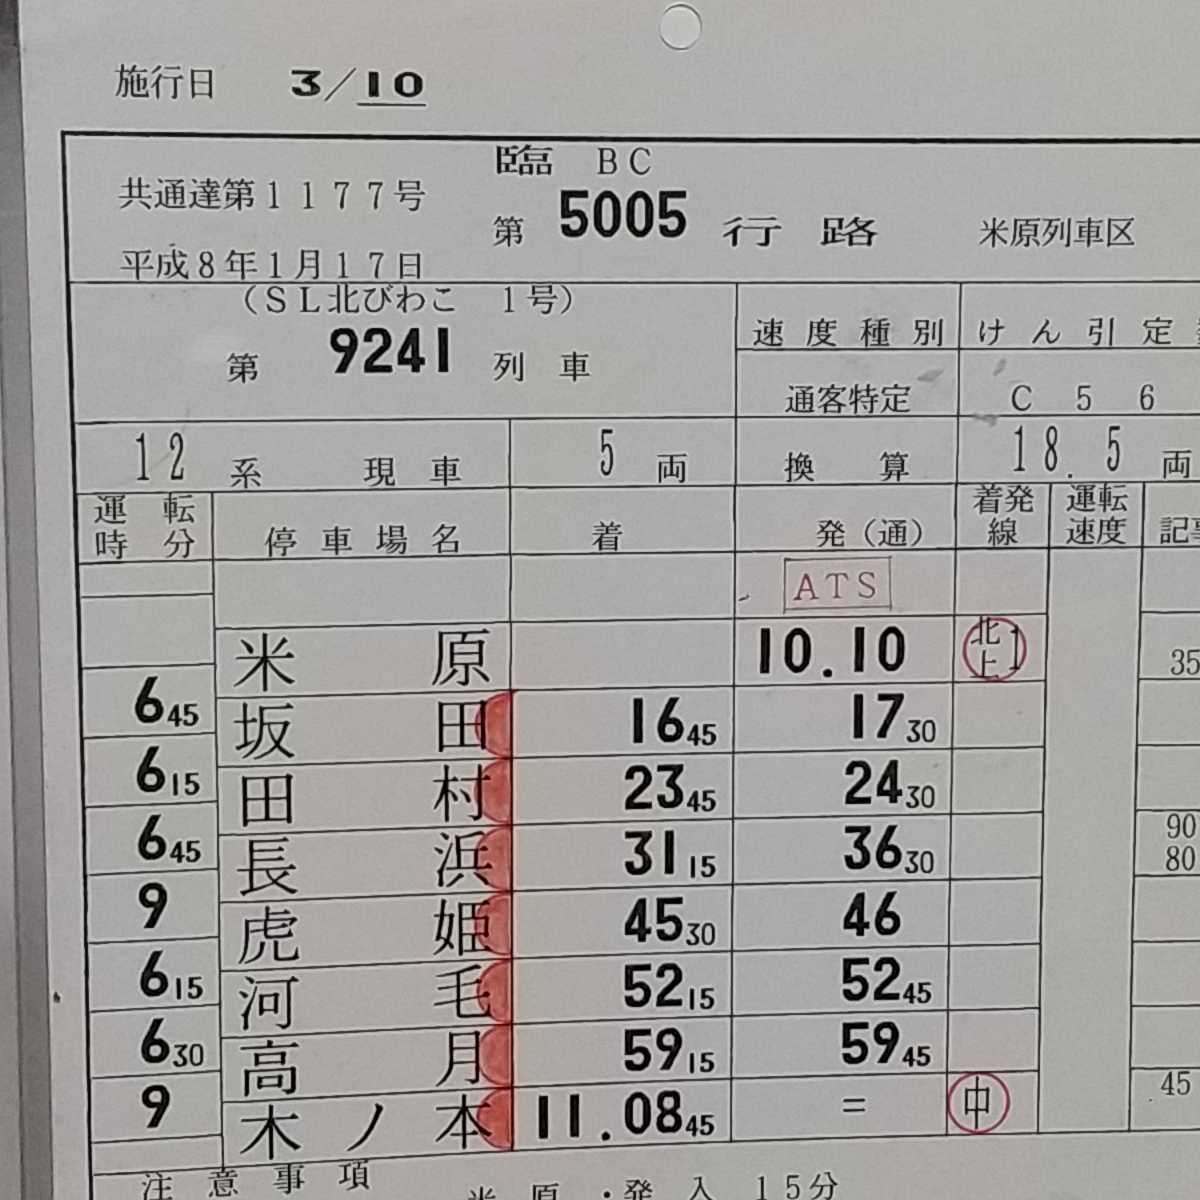 施行日 3/10
臨 BC
共通達第1177号
第 5005 行路 米原列車区
平成8年1月17日
(SL北びわこ 1号)
第 9241 列車
速度種別 けん引定
通客特定 C56
12系 現車 5両 換算 18.5両
運転時分 停車場名 着 発(通) 着発線 運転速度 記事
ATS
米原 10.10 北上1 35
6 45 坂田 16 45 17 30
6 15 田村 23 45 24 30
6 45 長浜 31 15 36 30 90 80
9 虎姫 45 30 46
6 15 河毛 52 15 52 45
6 30 高月 59 15 59 45
9 木ノ本 11.08 45 = 中 45
注意事項
米原・発入 15分